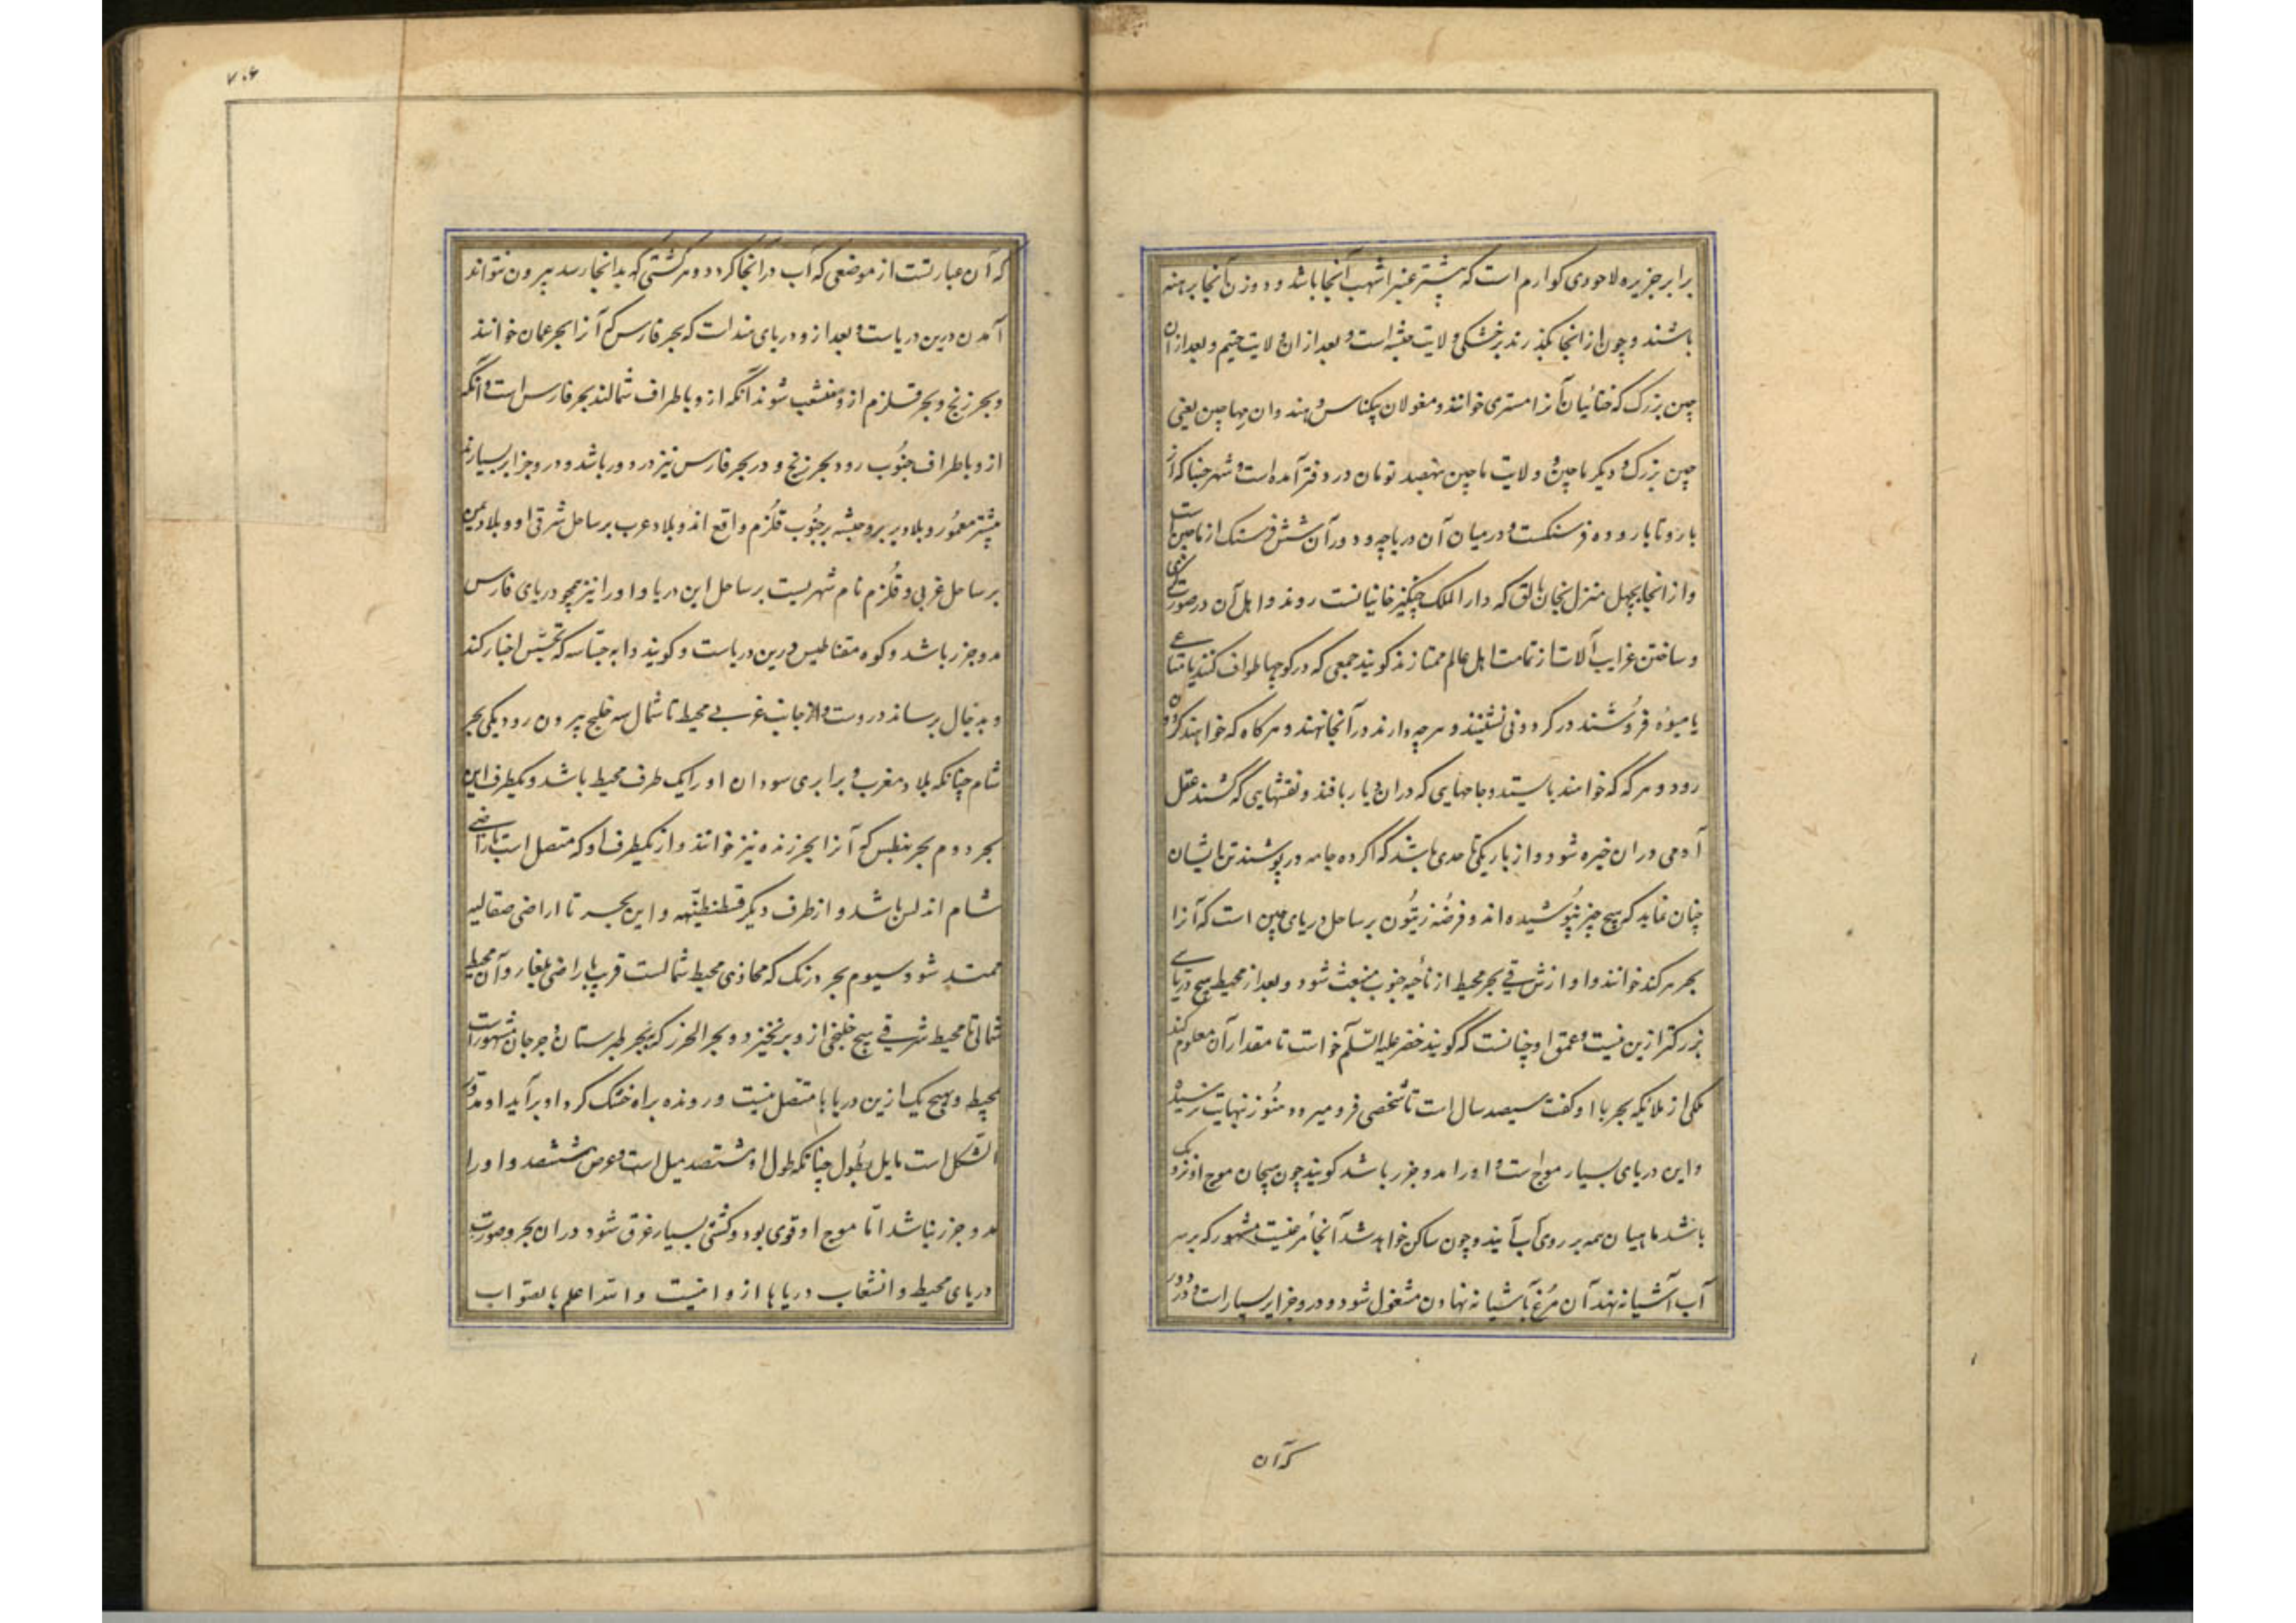 برابر جزیره لاحودی کوارم است که بیشتر عنبر اشهب آنجا باشد و دو زن آنجا برهنه
باشند و چون از انجا بگذرند بر خشکی ولایت حبشه است و بعد از ان ولایت جتیم و بعد از ان
چین بزرک که ختائیان آنرا مستری خوانند و مغولان پیکناس و هند وان مهاچین یعنی
چین بزرک و دیکر ماچین و ولایت ماچین نهصد تومان در دفتر آمده است و شهر چنانکه از
بارو تا بارو ده فرسنکست و در میان آن دریاچه و دور آن شش فرسنک از ماچین است
و از انجا بچهل منزل بخان بالق که دار الملک چنکیز خانیانست روند و اهل آن در صورتکری
و ساختن غرایب آلات از تمامت اهل عالم ممتازند کویند جمعی که در کوچها طواف کنند یا متاعی
یا میوه فروشند در کردونی نشینند و هر چه دارند در آنجا نهند و هر کاه که خواهند کردون
رود و هر که که خواهند بایستد و جامهایی که در ان دیار بافند و نقشهایی که کشند عقل
آدمی در ان خیره شود و از باریکی تا حدی باشد که اکر ده جامه در پوشند تن ایشان
چنان نماید که هیچ چیز نپوشیده اند و فرضه زیتون بر ساحل دریای چین است که آنرا
بحر هرکند خوانند و او از شرقی بحر محیط از ناحیه جنوب منبعث شود و بعد از محیط هیچ دریای
بزرکتر ازین نیست و عمق او چنانست که کویند خضر علیه السلم خواست تا مقدار آن معلوم کند
ملکی از ملایکه بحر با او کفت سیصد سال است تا شخصی فرو میرود هنوز نهایت نرسیده
و این دریای بسیار مواج است و او را مد و جزر باشد کویند چون هیجان موج او نزدیک
باشد ماهیان همه بر روی آب آیند و چون ساکن خواهد شد آنجا مرغیست مشهور که بر سر
آب آشیانه نهد آن مرغ بآشیانه نهادن مشغول شود و درو جزایر بسیار است و دردور
که آن
۷۰۶
که آن عبارتست از موضعی که آب در انجا کردد و هر کشتی که بدانجا رسد بیرون نتواند
آمدن درین دریاست و بعد ازو دریای هند است که بحر فارس که آنرا بحر عمان خوانند
و بحر زنج و بحر قلزم ازو منشعب شوند آنکه ازو باطراف شمالند بحر فارس است و انکه
ازو باطراف جنوب رود بحر زنج و در بحر فارس نیز دردور باشد و درو جزایر بسیارند
بیشتر معمور و بلاد بربر و حبشه بر جنوب قلزم واقع اند و بلاد عرب بر ساحل شرقی او و بلاد یمن
بر ساحل غربی و قلزم نام شهریست بر ساحل این دریا و او را نیز همچو دریای فارس
مد و جزر باشد و کوه مقناطیس درین دریاست و کویند دابه جساسه که تجسس اخبار کند
و بدجال رساند دروست و از جانب غربی محیط تا شمال سه خلیج بیرون رود یکی بحر
شام چنانکه بلاد مغرب و برابری سودان او را یک طرف محیط باشد و یکطرف این
بحر دوم بحر بنطس که آنرا بحر زنده نیز خوانند و از یکطرف او که متصل است باراضی
شام اندلس باشد و از طرف دیکر قسطنطنیه و این بحر تا اراضی صقالبه
ممتد شود سیوم بحر درنک که محاذی محیط شمالست قریب باراضی بلغار و آن محیط
شمالی تا محیط شرقی هیچ خلیجی ازو برنخیزد و بحر الخزر که ببحر طبرستان و جرجان مشهور است
بمحیط و بهیچ یک ازین دریاها متصل نیست و رونده براه خشک کرد او برآید او مدور
الشکل است مایل بطول چنانکه طول او هشتصد میل است و عرض ششصد و او را
مد و جزر نباشد امّا موج او قوی بود و کشتی بسیار غرق شود در ان بحر و صورت
دریای محیط و انشعاب دریاها ازو اینست والله اعلم بالصواب